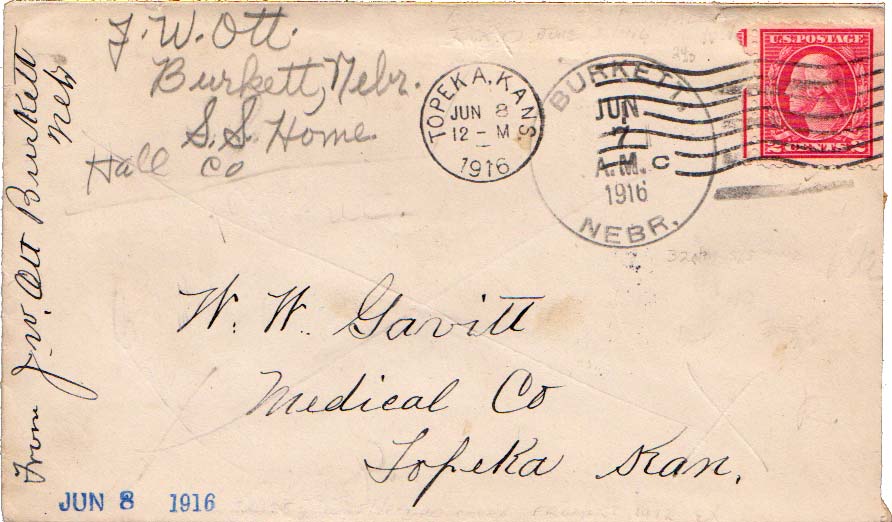 J. W. Ott.
Burkett, Nebr.
S. S. Home.
Hall Co
From J. W. Ott Burkett
Neb
TOPEKA, KANS.
JUN 8
12 - M
1916
BURKETT,
JUN
7
A.M.
1916
NEBR.
C
U.S. POSTAGE
2 CENTS 2
W. W. Gavitt
Medical Co
Topeka Kan.
JUN 8 1916